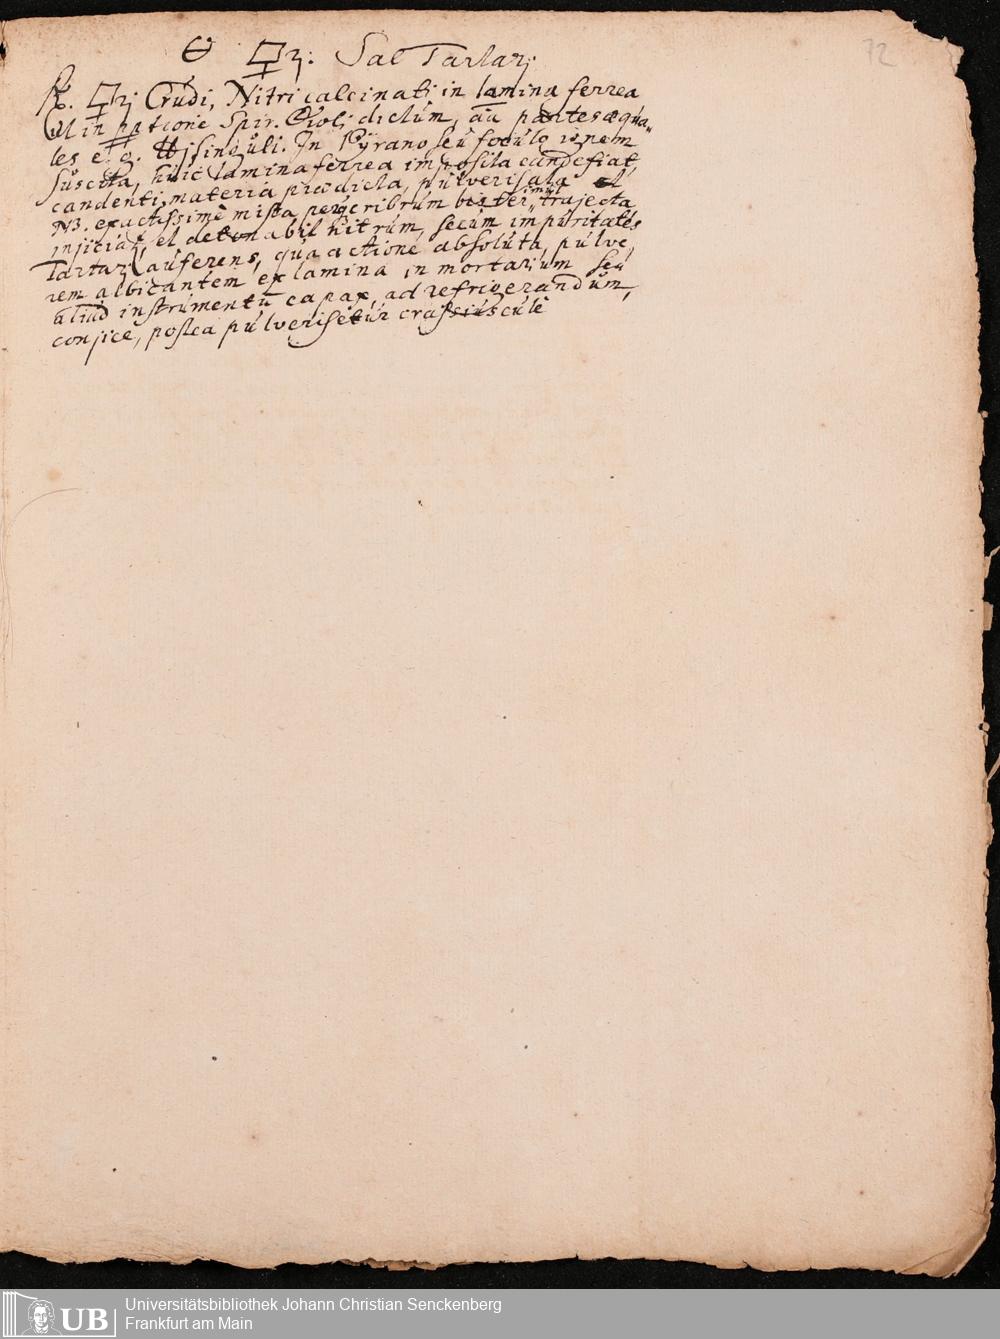 72
🜔 🜿ri: Sal Tartari
℞. 🜿ri Crudi, Nitri calcinati in lamina ferrea
ut in pptione Spir. ⊖ioli dictum, aa partes æqua-
les e. g. ℔j singuli. In Pÿrano seu foculo ignem
suscita, huic lamina ferrea imposita candefiat,
candenti materia prædicta, pulverisata et
NB. exactissimè mista per cribrum trajecta
injiciat, et detonabit nitrum, secum impuritates
Tartari auferens, qua actione absoluta, pulve,
rem albicantem ex lamina in mortarium seu
aliud instrumentū capax, ad refrigerandum,
conjice, postea pulverisetur crassiusculè
Universitätsbibliothek Johann Christian Senckenberg
Frankfurt am Main
UB